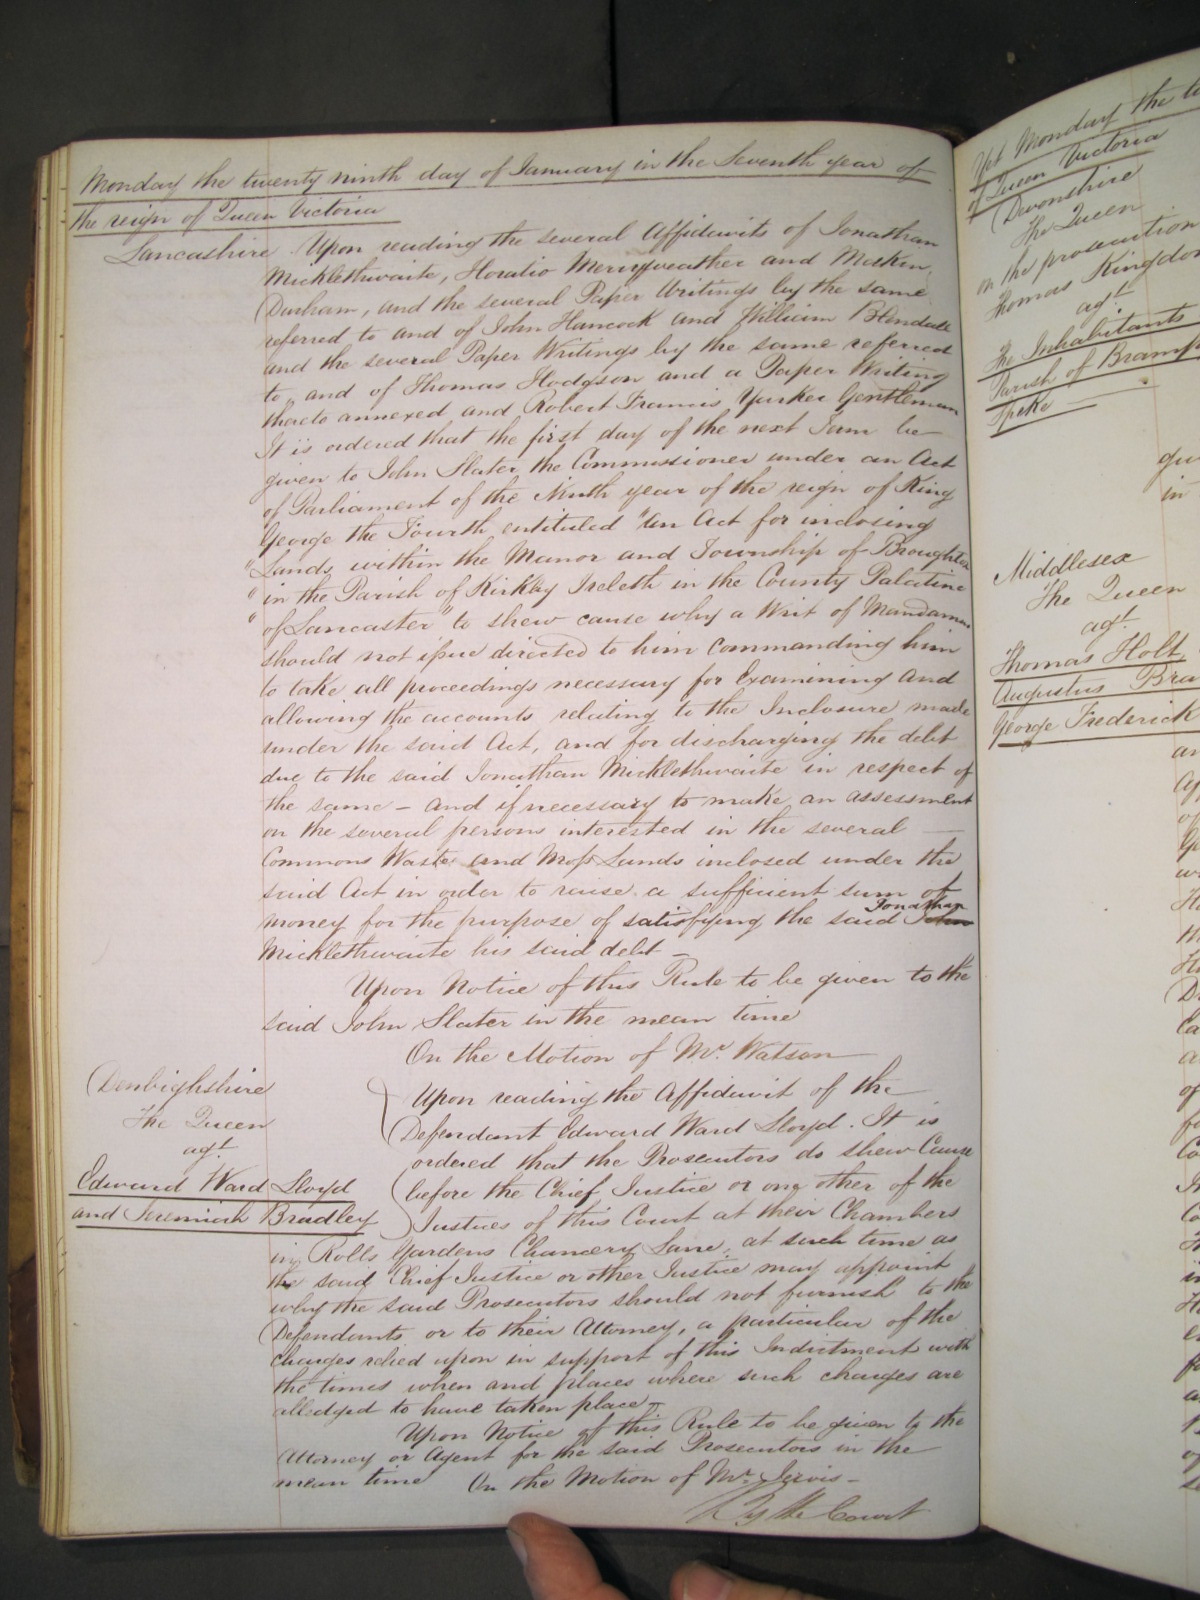 Monday the twenty ninth day of January in the Seventh year of
the reign of Queen Victoria
Lancashire Upon reading the several Affidavits of Jonathan
Micklethwaite, Horatio Merryweather and
Durham, and the several Paper Writings by the same
referred to and of John Hancock and William Blendall
and the several Paper Writings by the same referred
to, and of Thomas Hodgson and a Paper Writing
thereto annexed and Robert Francis Yarker Gentleman
It is ordered that the first day of the next Term be
given to John Slater, the Commissioner under an Act
of Parliament of the Ninth year of the reign of King
George the Fourth entituled "An Act for inclosing
"Lands, within the Manor and Township of Broughton
"in the Parish of Kirkby Ireleth in the County Palatine
"of Lancaster" to shew cause why a Writ of Mandamus
should not issue directed to him commanding him
to take all proceedings necessary for Examining and
allowing the accounts relating to the Inclosure made
under the said Act, and for discharging the debt
due to the said Jonathan Micklethwaite in respect of
the same – and if necessary to make an assessment
on the several persons interested in the several
Commons Waste and Moss Lands inclosed under the
said Act in order to raise a sufficient sum of
money for the purpose of satisfying the said Jonathan John
Micklethwaite his said debt –
Upon Notice of this Rule to be given to the
said John Slater in the mean time
On the Motion of Mr. Watson
Denbighshire
The Queen
agt.
Edward Ward Lloyd
and Jeremiah Bradley
Upon reading the Affidavit of the
Defendant Edward Ward Lloyd. It is
ordered that the Prosecutors do shew Cause
before the Chief Justice or one other of the
Justices of this Court at their Chambers
in Rolls Gardens Chancery Lane, at such time as
the said Chief Justice or other Justice may appoint
why the said Prosecutors should not furnish to the
Defendants or to their Attorney, a particular of the
charges relied upon in support of this Indictment with
the times when and places where such charges are
alledged to have taken place –
Upon Notice of this Rule to be given to the
Attorney or Agent for the said Prosecutors in the
mean time On the Motion of Mr. Jervis –
By the Court
Yet Monday the
of Queen Victoria
Devonshire
The Queen
on the prosecution
Thomas Kingdon
agt.
The Inhabitants
Parish of
Speke
Middlesex
The Queen
agt.
Thomas Holt
Augustus
George Frederick